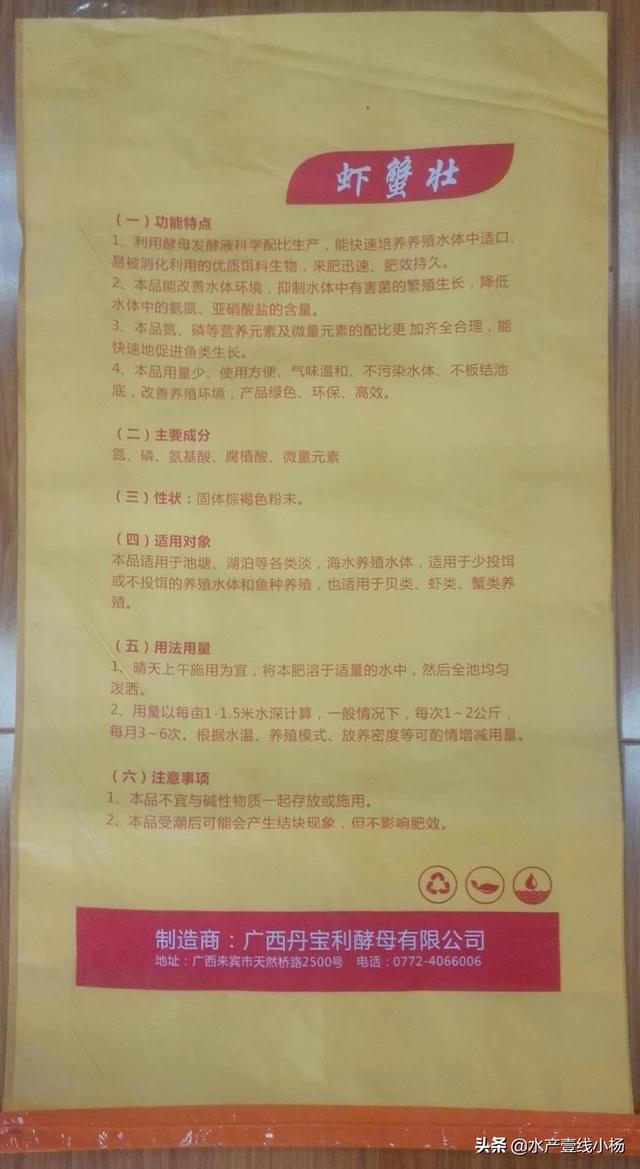 虾蟹壮
（一）功能特点
1、利用酵母发酵液科学配比生产，能快速培养养殖水体中适口、
易被消化利用的优质饵料生物，来肥迅速、肥效持久。
2、本品能改善水体环境，抑制水体中有害菌的繁殖生长，降低
水体中的氨氮、亚硝酸盐的含量。
3、本品氮、磷等营养元素及微量元素的配比更 加齐全合理，能
快速地促进鱼类生长。
4、本品用量少、使用方便、气味温和、不污染水体、不板结池
底，改善养殖环境，产品绿色、环保、高效。
（二）主要成分
氮、磷、氨基酸、腐植酸、微量元素
（三）性状：固体棕褐色粉末。
（四）适用对象
本品适用于池塘、湖泊等各类淡，海水养殖水体，适用于少投饵
或不投饵的养殖水体和鱼种养殖，也适用于贝类、虾类、蟹类养
殖。
（五）用法用量
1、晴天上午施用为宜，将本肥溶于适量的水中，然后全池均匀
泼洒。
2、用量以每亩1-1.5米水深计算，一般情况下，每次1～2公斤，
每月3～6次。根据水温、养殖模式、放养密度等可酌情增减用量。
（六）注意事项
1、本品不宜与碱性物质一起存放或施用。
2、本品受潮后可能会产生结块现象，但不影响肥效。
制造商：广西丹宝利酵母有限公司
地址：广西来宾市天然桥路2500号 电话：0772-4066006
头条 @水产壹线小杨